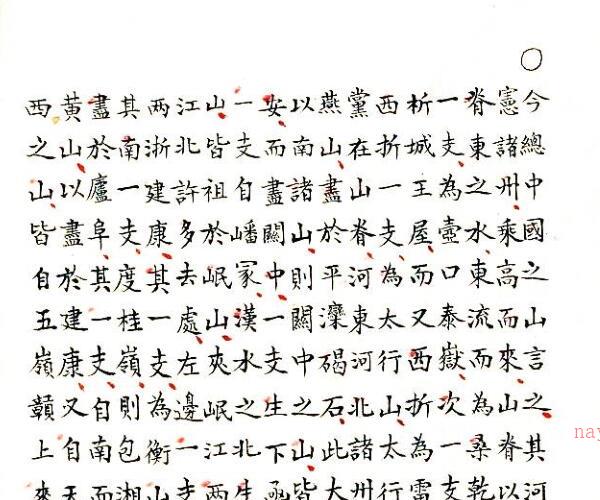 ○
今總中國之山言之其河
憲諸州乘高而來山脊以
脊東之水東流而為桑乾
一支為壺口泰嶽次一支
析城王屋而又西折為雷
西折一支為太行山太行
黨在山脊河東河北諸州
燕山盡於平灤碣石此大
以南諸山則關中之山皆
安而盡關中一支生下函
一支自嶓冢漢水之北生
山皆祖於岷山夾岷江两
江北許多去處左邊一支
两浙建康其一支為衡山
其南一支度桂嶺則包湘
盡於廬阜其一支自南而
黃山以盡於建康又自天
西之山皆自五嶺贛上來
nay